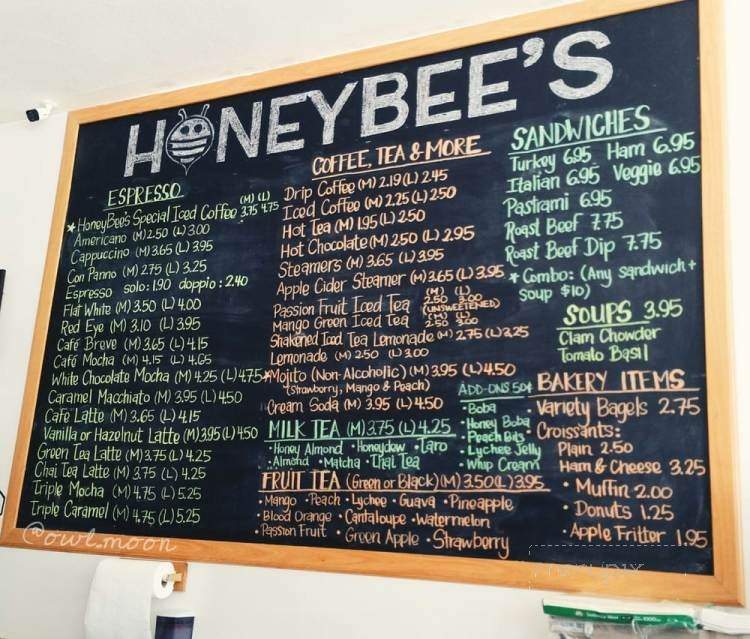 HONEYBEE'S
ESPRESSO
(M) (L)
* HoneyBee's Special Iced Coffee 3.75 4.75
Americano (M) 2.50 (L) 3.00
Cappuccino (M) 3.65 (L) 3.95
Con Panno (M) 2.75 (L) 3.25
Espresso solo: 1.90 doppio: 2.40
Flat White (M) 3.50 (L) 4.00
Red Eye (M) 3.10 (L) 3.95
Café Breve (M) 3.65 (L) 4.15
Café Mocha (M) 4.15 (L) 4.65
White Chocolate Mocha (M) 4.25 (L) 4.75
Caramel Macchiato (M) 3.95 (L) 4.50
Café Latte (M) 3.65 (L) 4.15
Vanilla or Hazelnut Latte (M) 3.95 (L) 4.50
Green Tea Latte (M) 3.75 (L) 4.25
Chai Tea Latte (M) 3.75 (L) 4.25
Triple Mocha (M) 4.75 (L) 5.25
Triple Caramel (M) 4.75 (L) 5.25
@owl.moon
COFFEE, TEA & MORE
Drip Coffee (M) 2.19 (L) 2.45
Iced Coffee (M) 2.25 (L) 2.50
Hot Tea (M) 1.95 (L) 2.50
Hot Chocolate (M) 2.50 (L) 2.95
Steamers (M) 3.65 (L) 3.95
Apple Cider Steamer (M) 3.65 (L) 3.95
(M) (L)
Passion Fruit Iced Tea 2.50 3.00
(UNSWEETENED)
(M) (L)
Mango Green Iced Tea 2.50 3.00
Shakened Iced Tea Lemonade (M) 2.75 (L) 3.25
Lemonade (M) 2.50 (L) 3.00
*Mojito (Non-Alcoholic) (M) 3.95 (L) 4.50
(Strawberry, Mango & Peach)
Cream Soda (M) 3.95 (L) 4.50
MILK TEA (M) 3.75 (L) 4.25
• Honey Almond • Honeydew • Taro
• Almond • Matcha • Thai Tea
ADD-ONS 50¢
• Boba
• Honey Boba
• Peach Bits
• Lychee Jelly
• Whip Cream
FRUIT TEA (Green or Black) (M) 3.50 (L) 3.95
• Mango • Peach • Lychee • Guava • Pineapple
• Blood Orange • Cantaloupe • Watermelon
• Passion Fruit • Green Apple • Strawberry
SANDWICHES
Turkey 6.95 Ham 6.95
Italian 6.95 Veggie 6.95
Pastrami 6.95
Roast Beef 7.75
Roast Beef Dip 7.75
* Combo: (Any sandwich +
soup $10)
SOUPS 3.95
Clam Chowder
Tomato Basil
BAKERY ITEMS
• Variety Bagels 2.75
• Croissants:
Plain 2.50
Ham & Cheese 3.25
• Muffin 2.00
• Donuts 1.25
• Apple Fritter 1.95